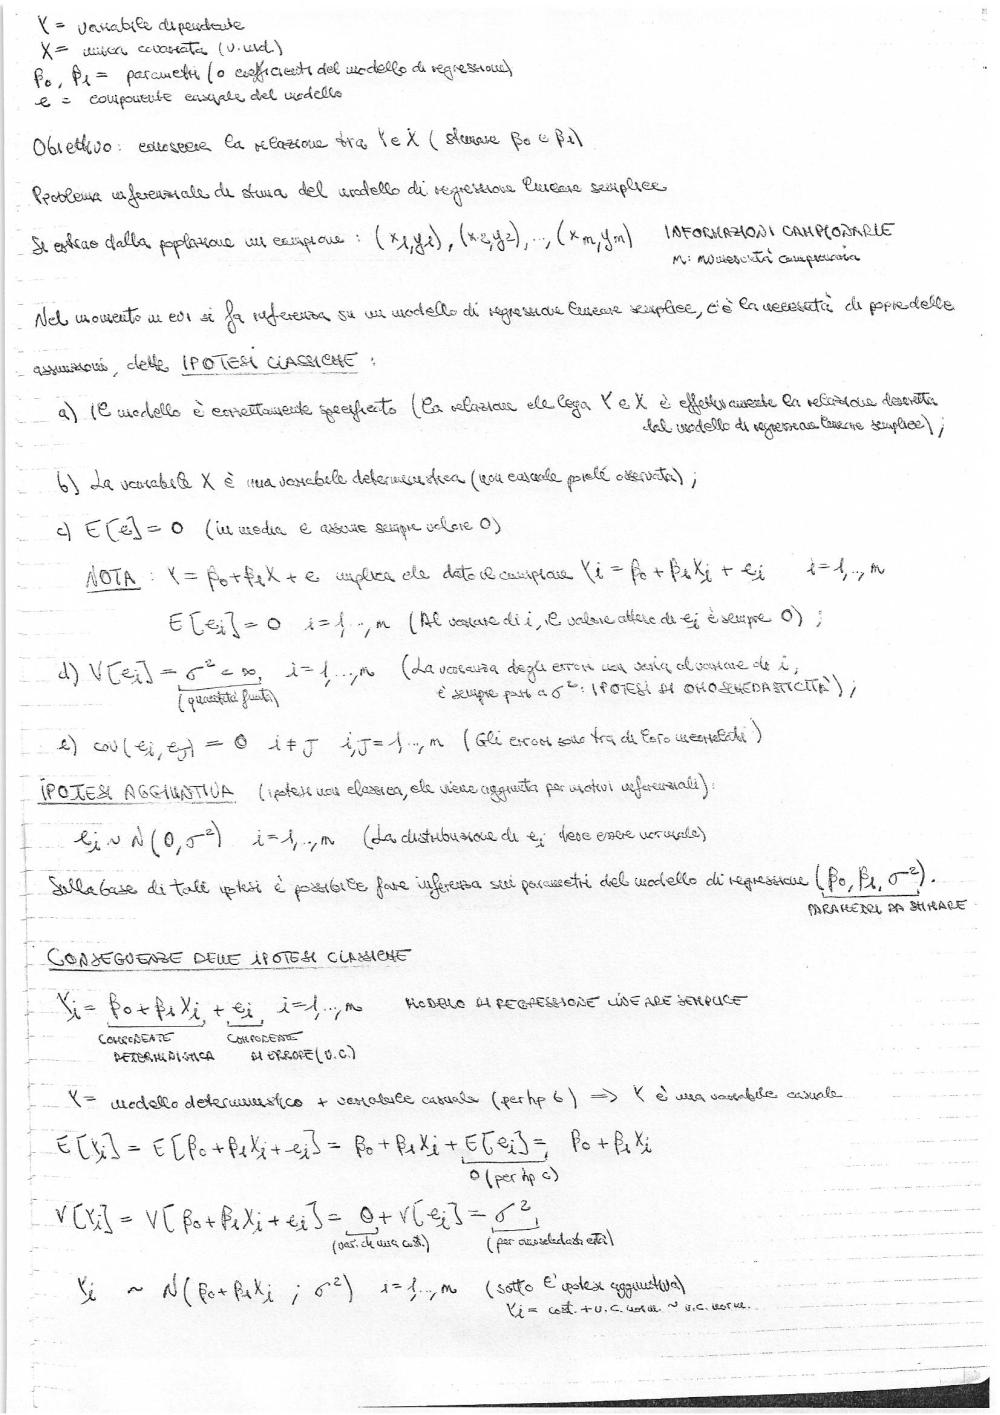 Y = variabile dipendente
X = unica covariata (v. ind.)
β0, β1 = parametri (o coefficienti del modello di regressione)
e = componente casuale del modello
Obiettivo: conoscere la relazione tra Y e X (stimare β0 e β1)
Problema inferenziale di stima del modello di regressione lineare semplice
Si estrae dalla popolazione un campione: (x1,y1), (x2,y2), .., (xn,yn) INFORMAZIONI CAMPIONARIE
n: numerosità campionaria
Nel momento in cui si fa inferenza su un modello di regressione lineare semplice, c'è la necessità di porre delle
assunzioni, dette IPOTESI CLASSICHE:
a) Il modello è correttamente specificato (la relazione che lega Y e X è effettivamente la relazione descritta
dal modello di regressione lineare semplice);
b) La variabile X è una variabile deterministica (non casuale poiché osservata);
c) E[e] = 0 (in media e assume sempre valore 0)
NOTA: Y = β0+β1X + e implica che dato il campione Yi = β0 + β1Xi + ei i=1,..,n
E[ei] = 0 i=1,..,n (Al variare di i, il valore atteso di ei è sempre 0);
d) V[ei] = σ² < ∞, i=1,..,n (La varianza degli errori non varia al variare di i,
(quantità finita) è sempre pari a σ²: IPOTESI DI OMOSCHEDASTICITÀ);
e) cov(ei, ej) = 0 i≠J i,J=1,..,n (Gli errori sono tra di loro incorrelati)
IPOTESI AGGIUNTIVA (ipotesi non classica, che viene aggiunta per motivi inferenziali):
ei ~ N(0,σ²) i=1,..,n (La distribuzione di ei deve essere normale)
Sulla base di tali ipotesi è possibile fare inferenza sui parametri del modello di regressione (β0, β1, σ²).
PARAMETRI DA STIMARE
CONSEGUENZE DELLE IPOTESI CLASSICHE
Yi = β0 + β1Xi + ei, i=1,..,n MODELLO DI REGRESSIONE LINEARE SEMPLICE
COMPONENTE COMPONENTE
DETERMINISTICA DI ERRORE (V.C.)
Y = modello deterministico + variabile casuale (per hp b) => Y è una variabile casuale
E[Yi] = E[β0+β1Xi+ei] = β0 + β1Xi + E[ei] = β0 + β1Xi
0 (per hp c)
V[Yi] = V[β0+β1Xi+ei] = 0 + V[ei] = σ²
(var. di una cost.) (per omoschedasticità)
Yi ~ N(β0+β1Xi ; σ²) i=1,..,n (sotto l'ipotesi aggiuntiva)
Yi = cost. + v.c. norm. ~ v.c. norm.